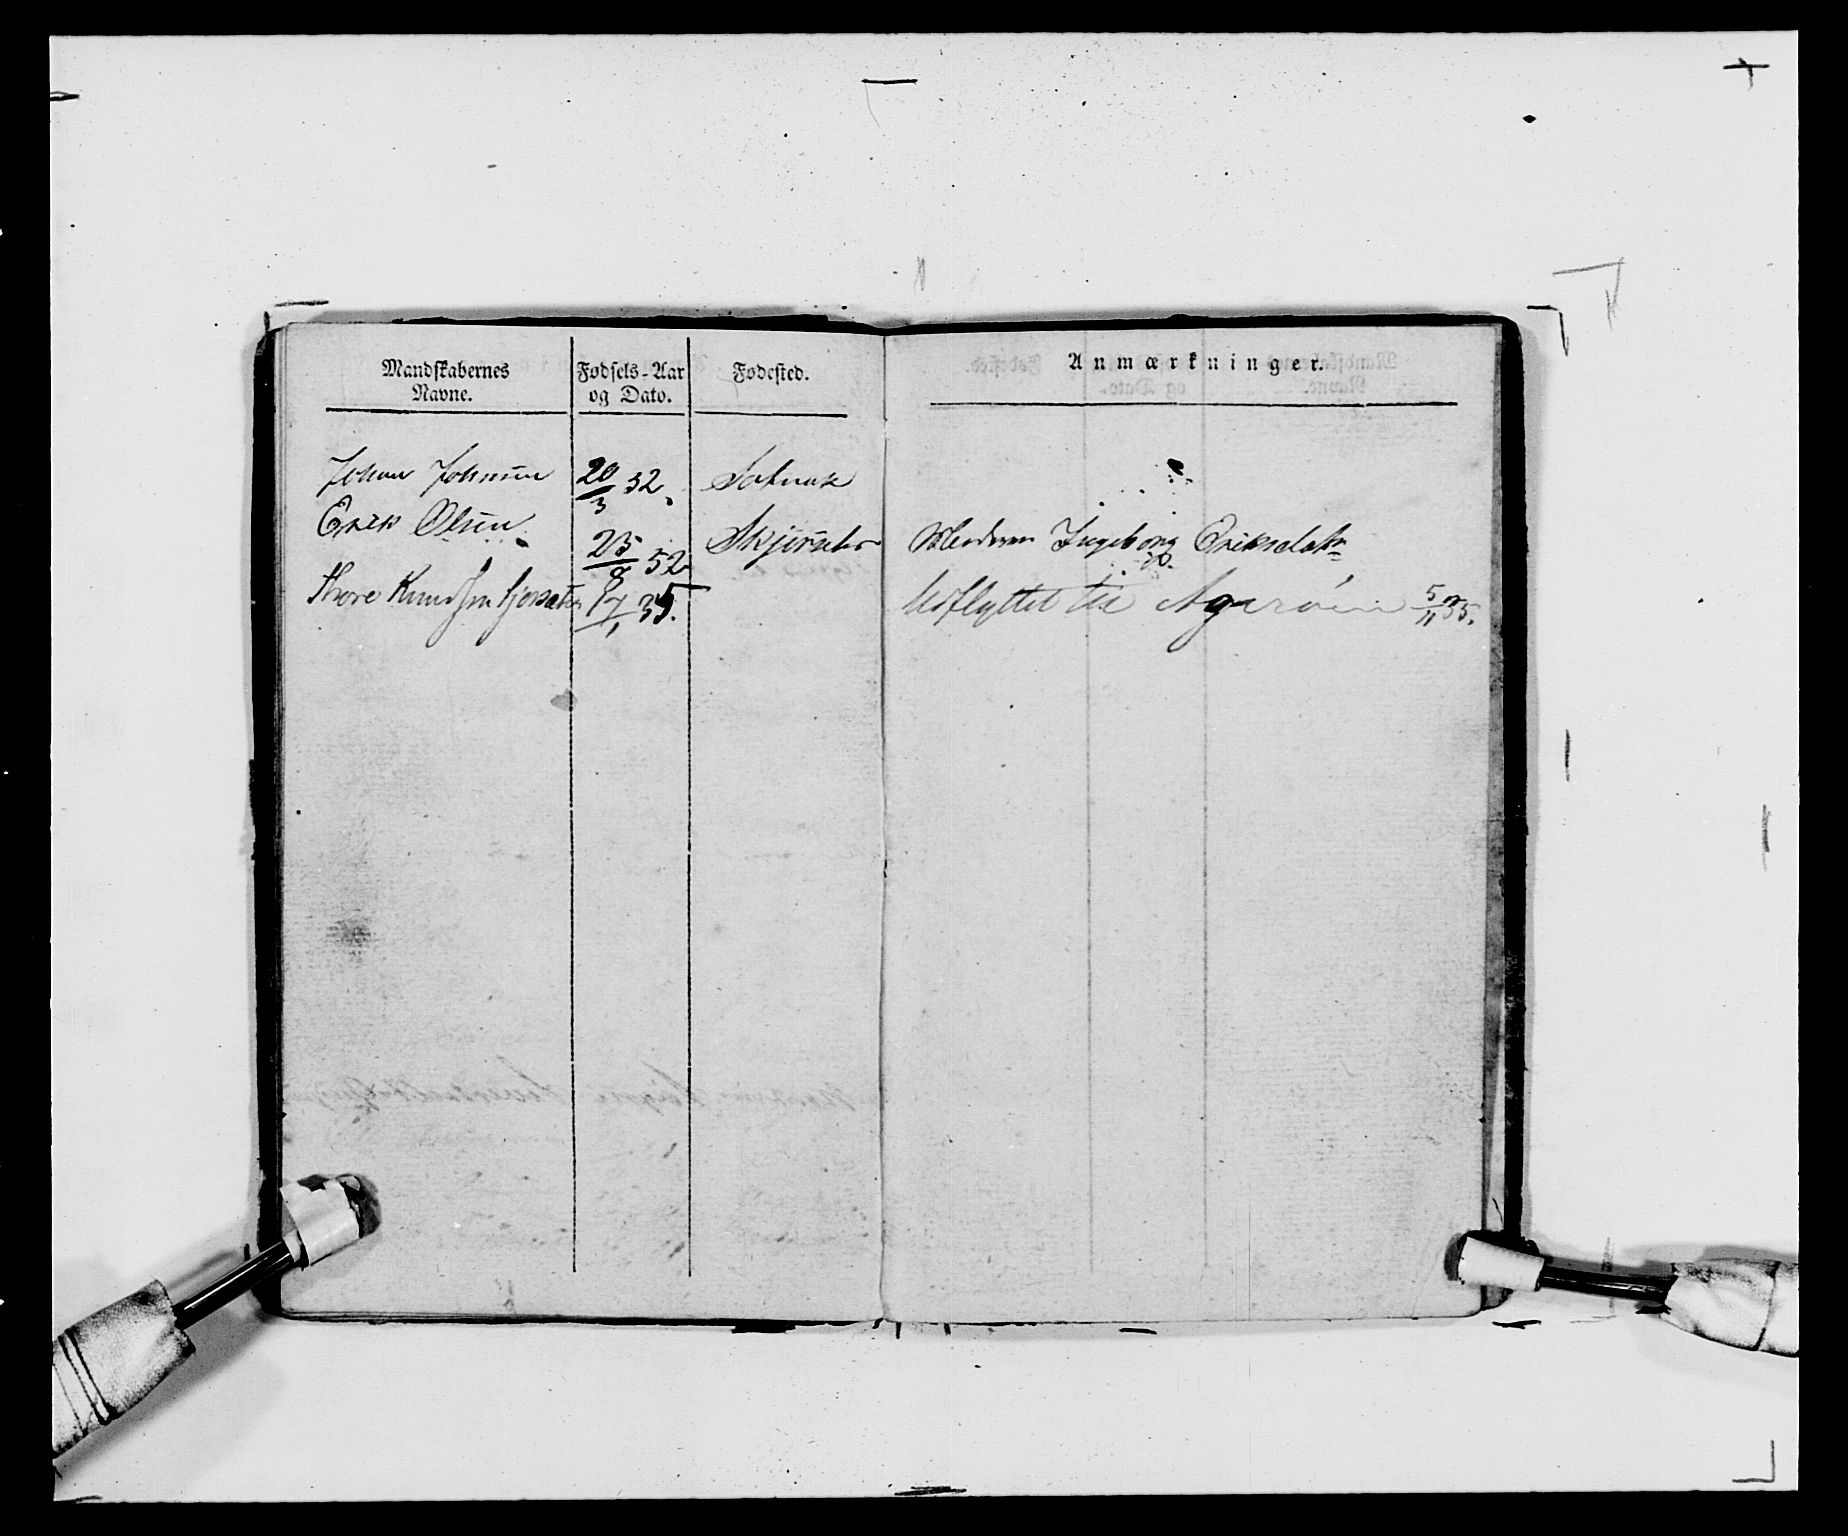 Mandskabernes Navne.
Fødsels-Aar og Dato.
Fødested.
Anmærkninger.
Johan Johnsen 20/3 32.
Erik Olsen 25/8 52
Moderen Ingeborg Eriksdatr
Thore Knudsen 17/1 35.
Udflyttet til Agerøen 5/11 55.